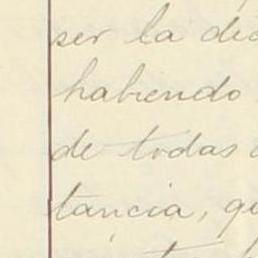 ser la
habiendo
de todas
tancia,